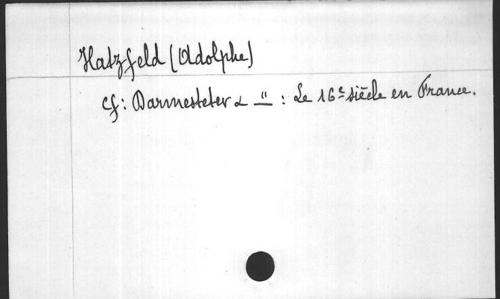 Hatzfeld (Adolphe)
cf: Darmesteter & — " — : Le 16e siècle en France.